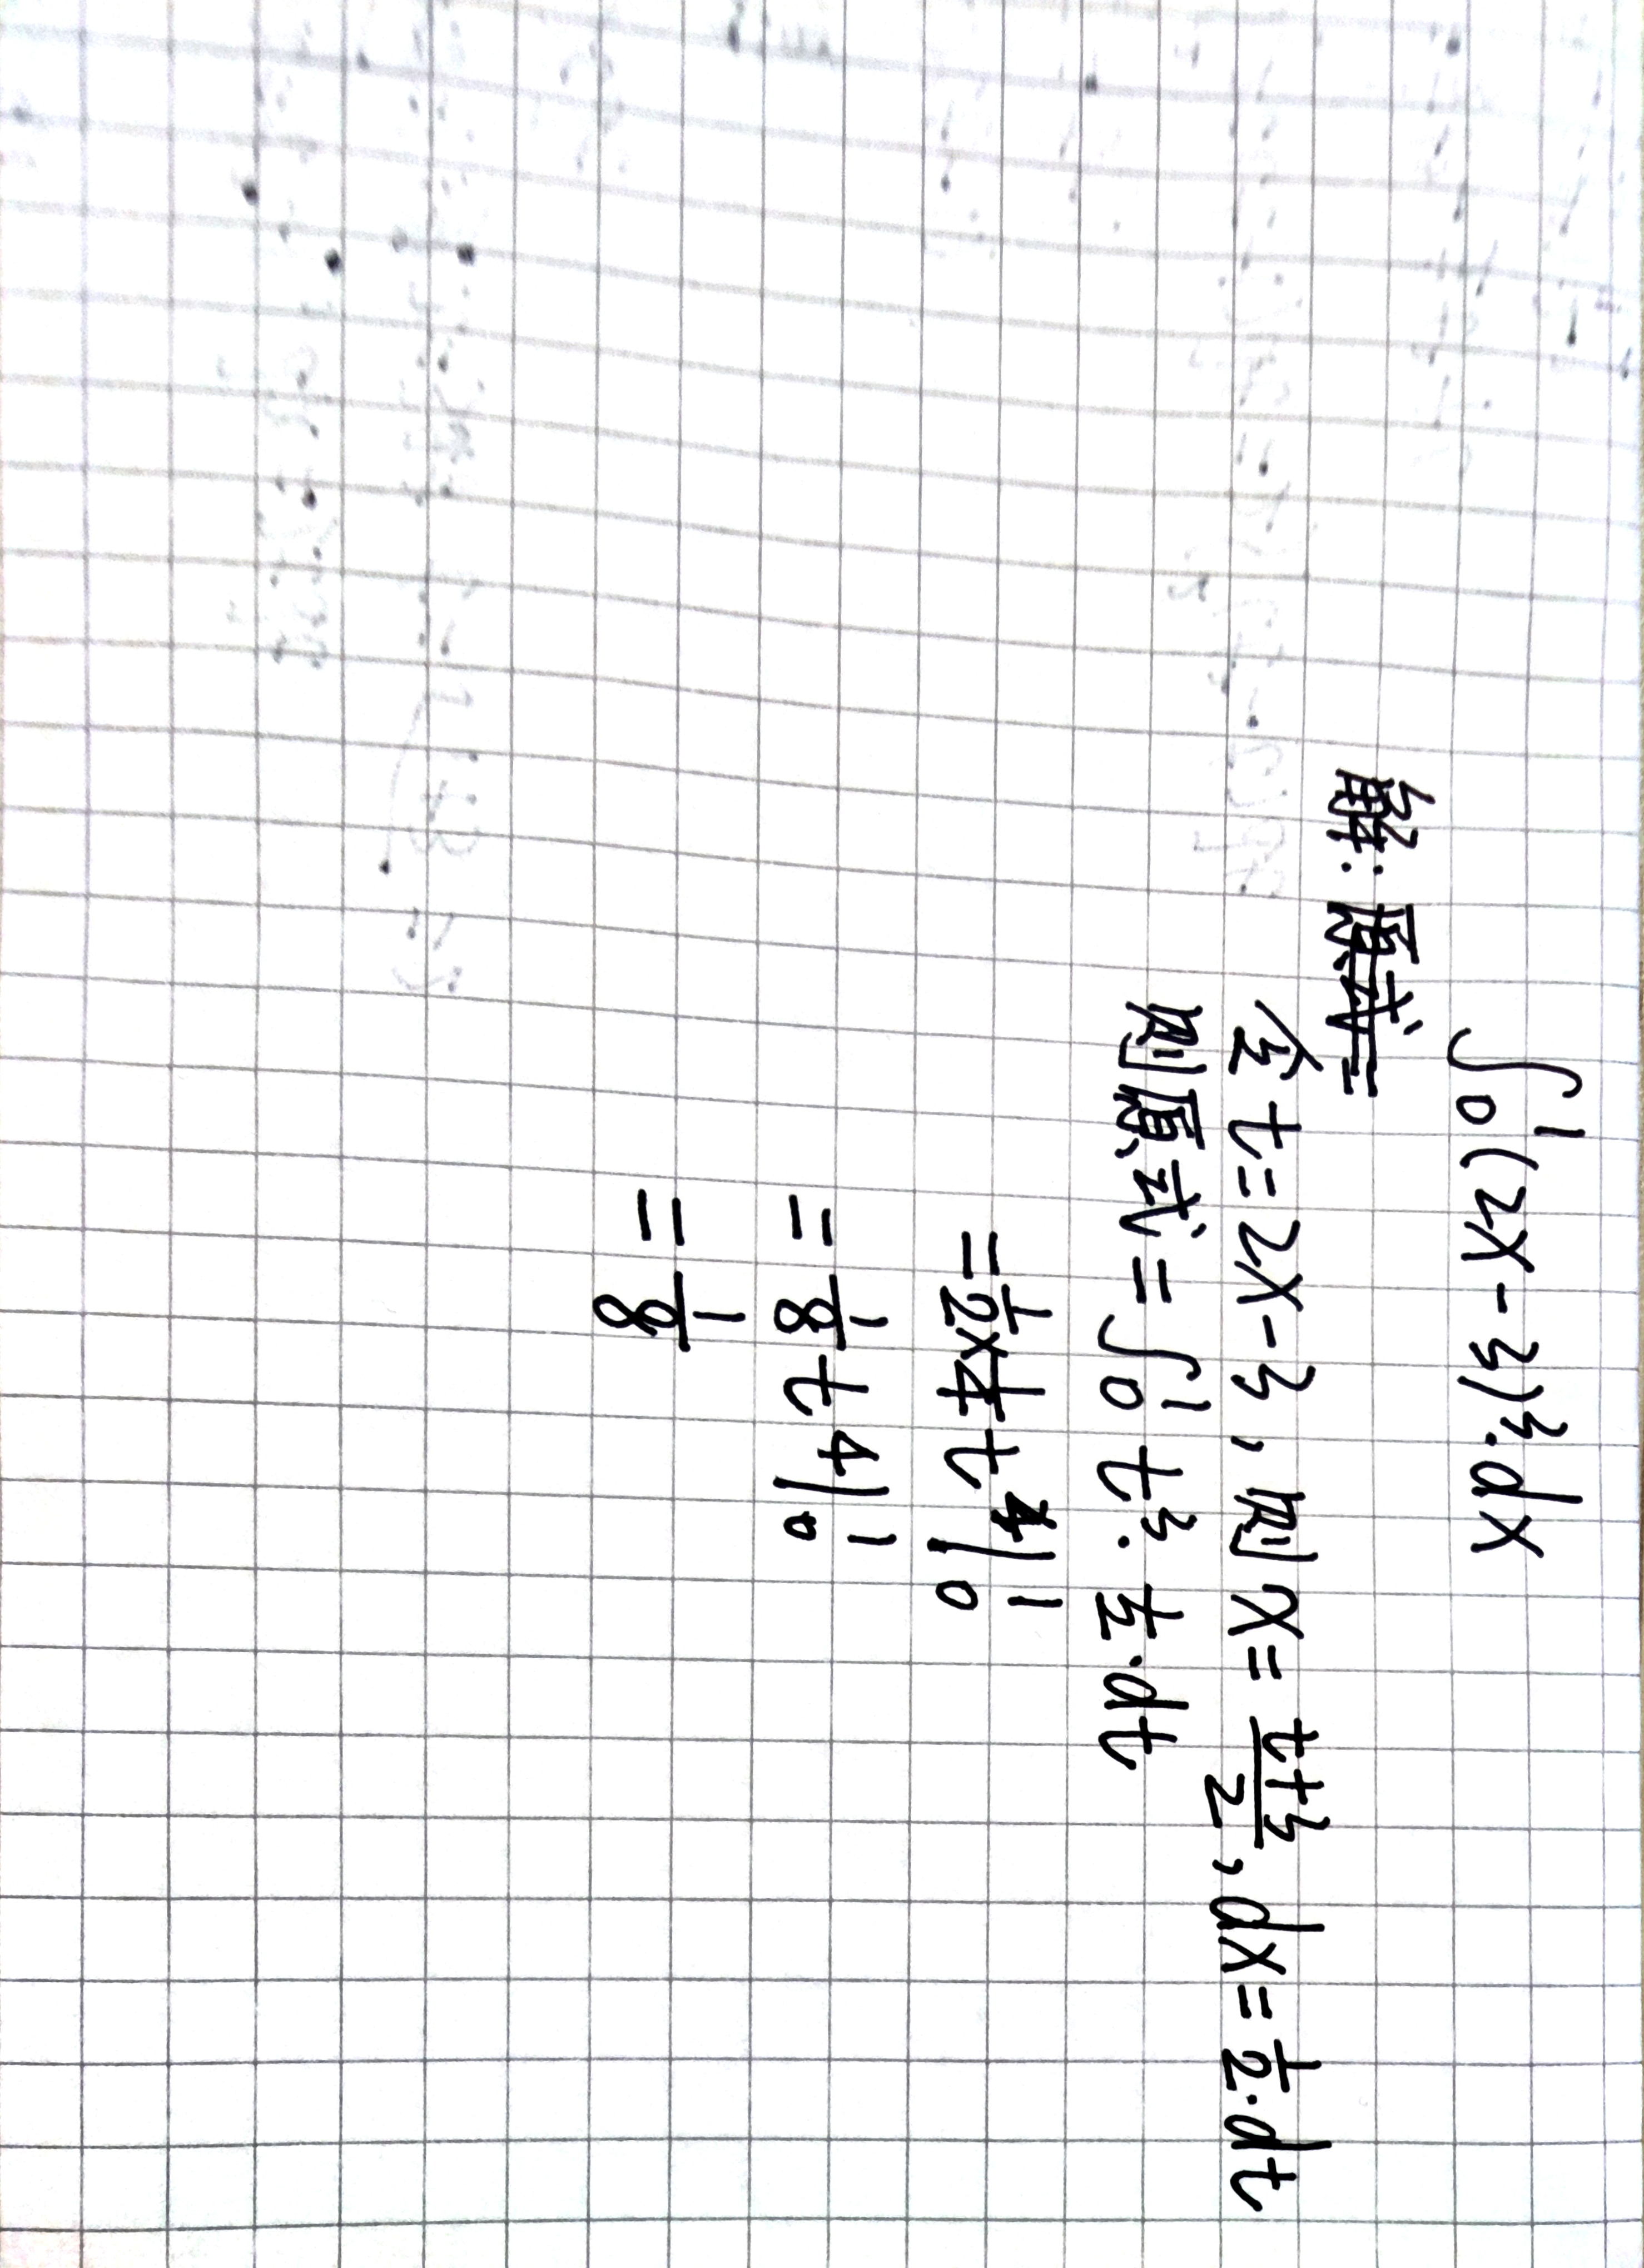 ∫₀¹(2x-3)³·dx
解: 原式=
令t=2x-3, 则x=\frac{t+3}{2}, dx=\frac{1}{2}·dt
则原式=∫₀¹ t³·\frac{1}{2}·dt
=\frac{1}{2}×\frac{1}{4}t⁴|₀¹
=\frac{1}{8}t⁴|₀¹
=\frac{1}{8}